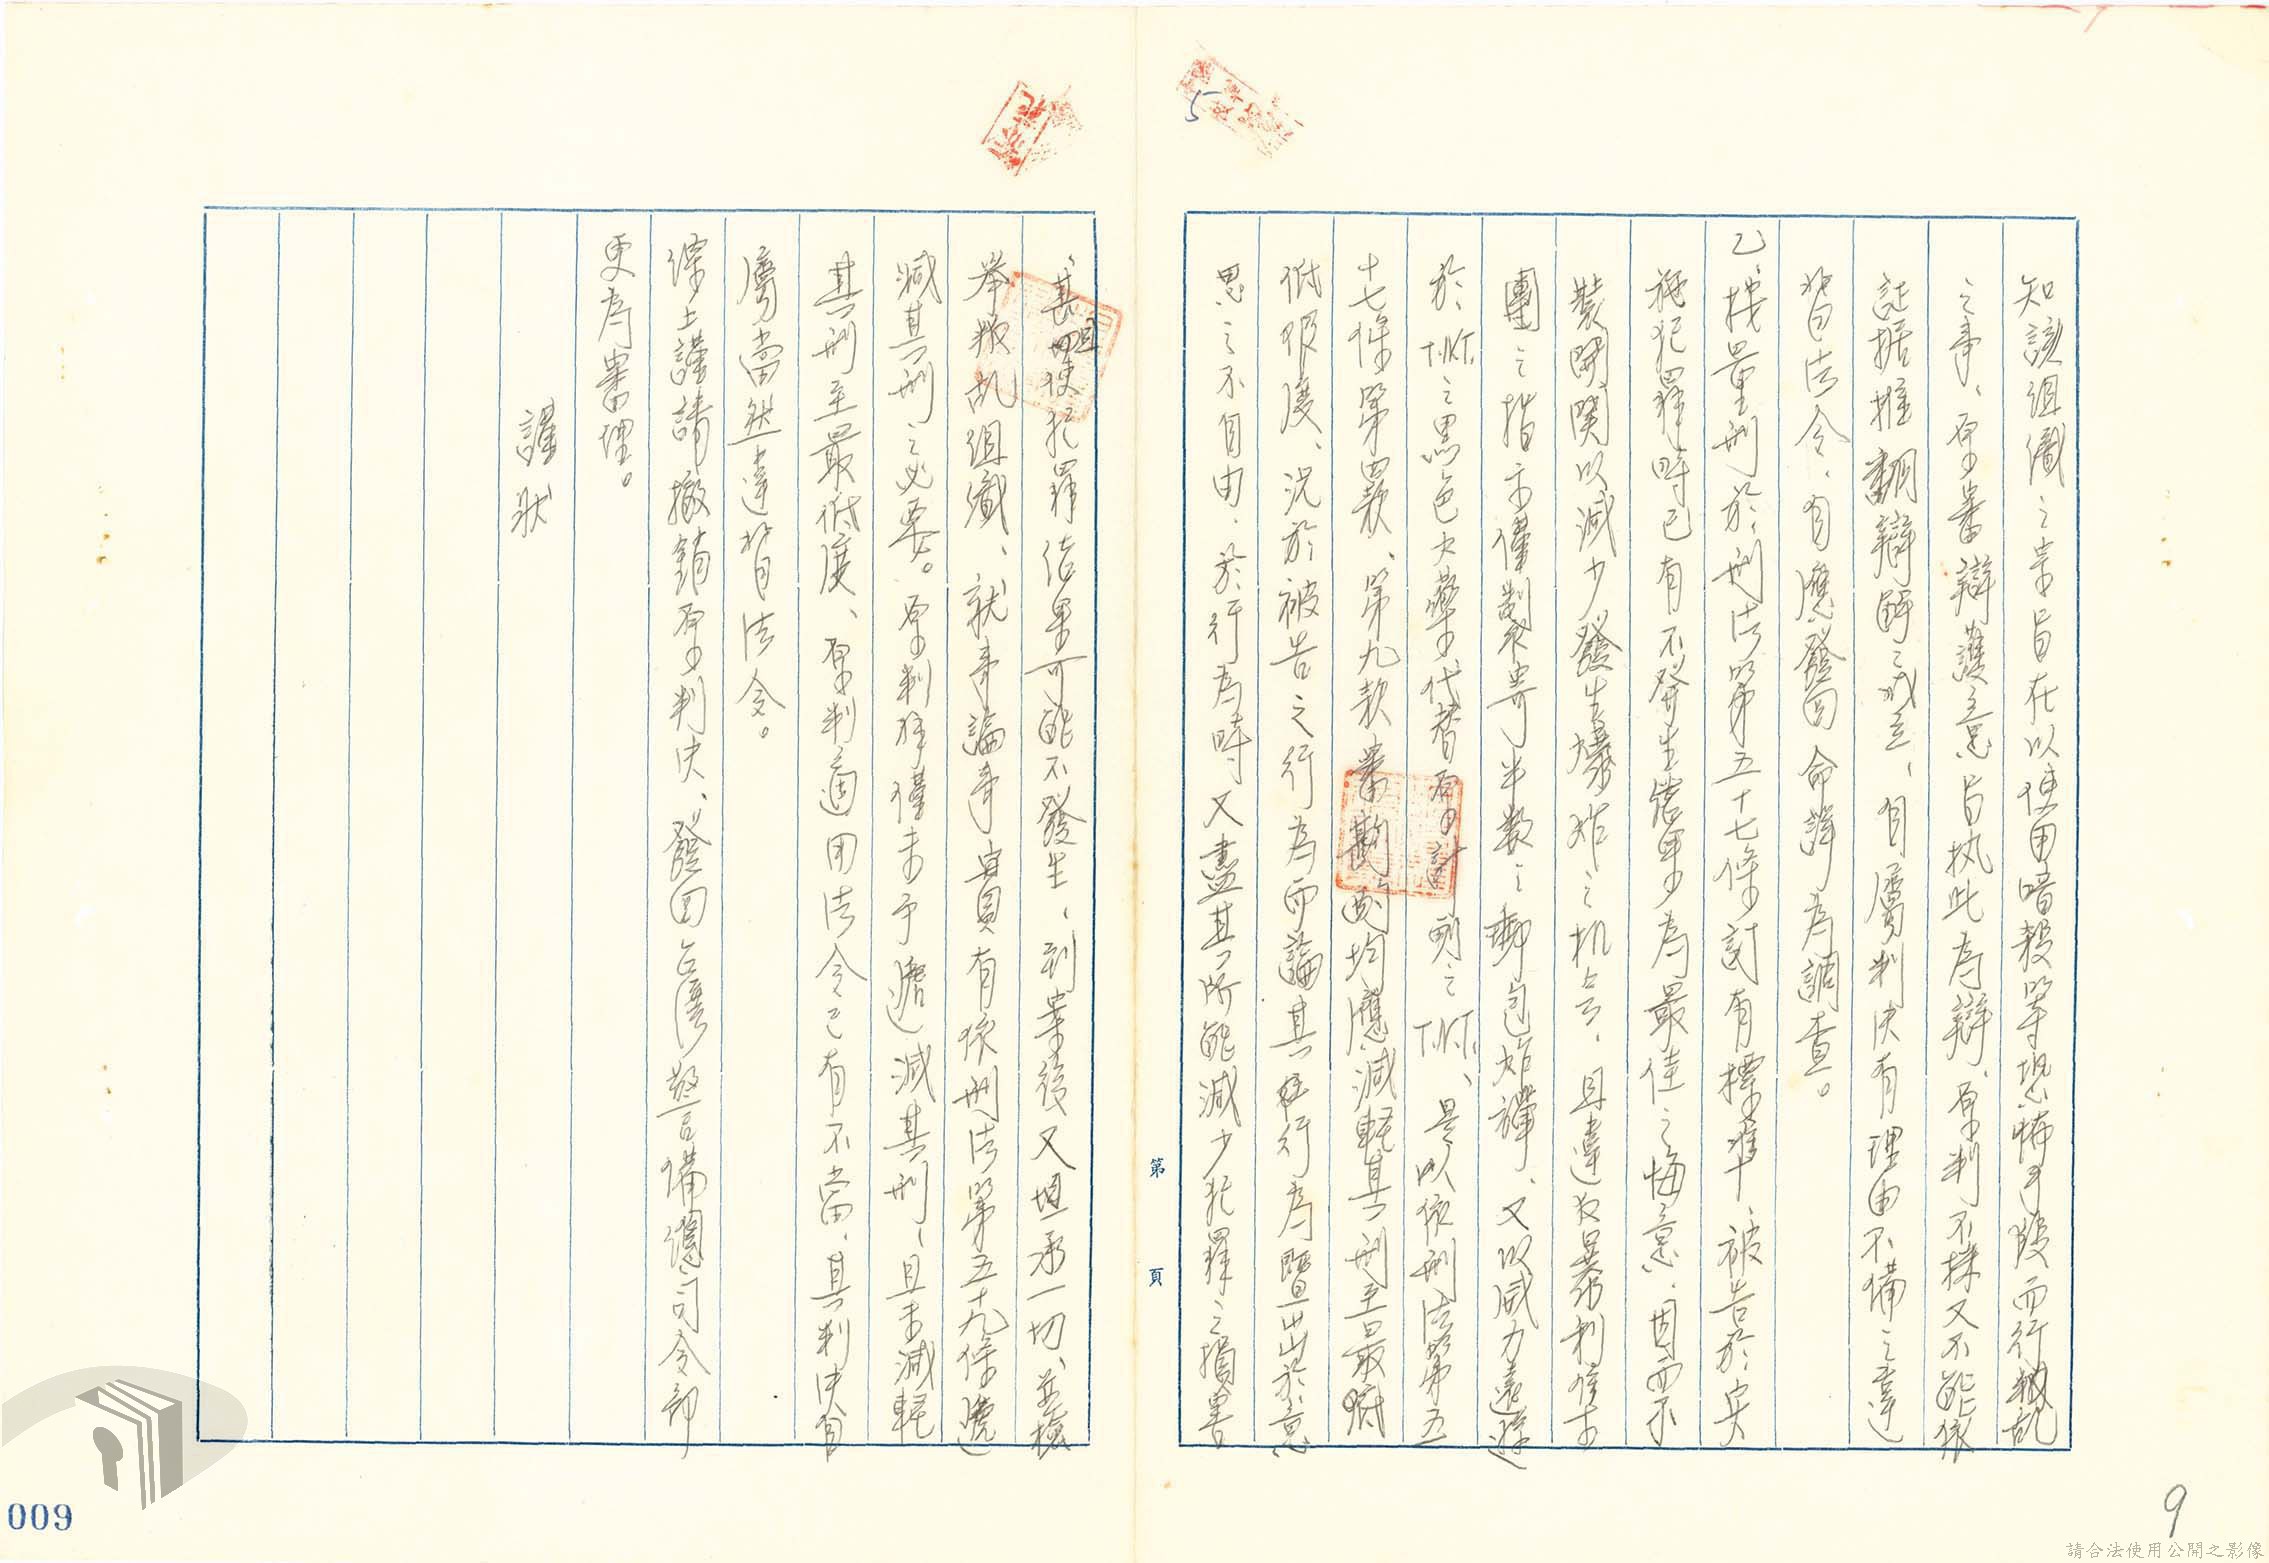 5
知該組織之宗旨在以使用暗殺等恐怖手段而行叛乱
之事、原審辯護意旨执此為辯、原判不採又不能依
証据推翻辯解之成立、自屬判決有理由不備之違
背法令、自應發回命詳為調查。
乙、按量刑於刑法第五十七條訂有標準、被告於实
施犯罪時已有不發生結果为最佳之悔意、因而不
裝開関以減少發生爆炸之机会、且違反暴力利
團之指示僅製寄半数之郵包炸彈、又以威力遠遜
於TNT之黑色火藥代替原計劃之TNT、是以依刑法第五
十七條第四款、第九款審酌均應減輕其刑至最
低限度、況於被告之行為而論其行為既出於意
思之不自由、於行為時又盡其所能減少犯罪之損害
、甚且使犯罪結果可能不發生、到案後又坦承一切、並檢
举叛乱組織、就事論事实有依刑法第五十九條遞
減其刑之必要。原判僅未予遞減其刑、且未減輕
其刑至最低度、原判適用法令已有不當、其判決自
屬當然違背法令。
綜上謹請撤銷原判決、發回台灣警備總司令部
更為審理。
謹狀
第 頁
009
9
請合法使用公開之影像